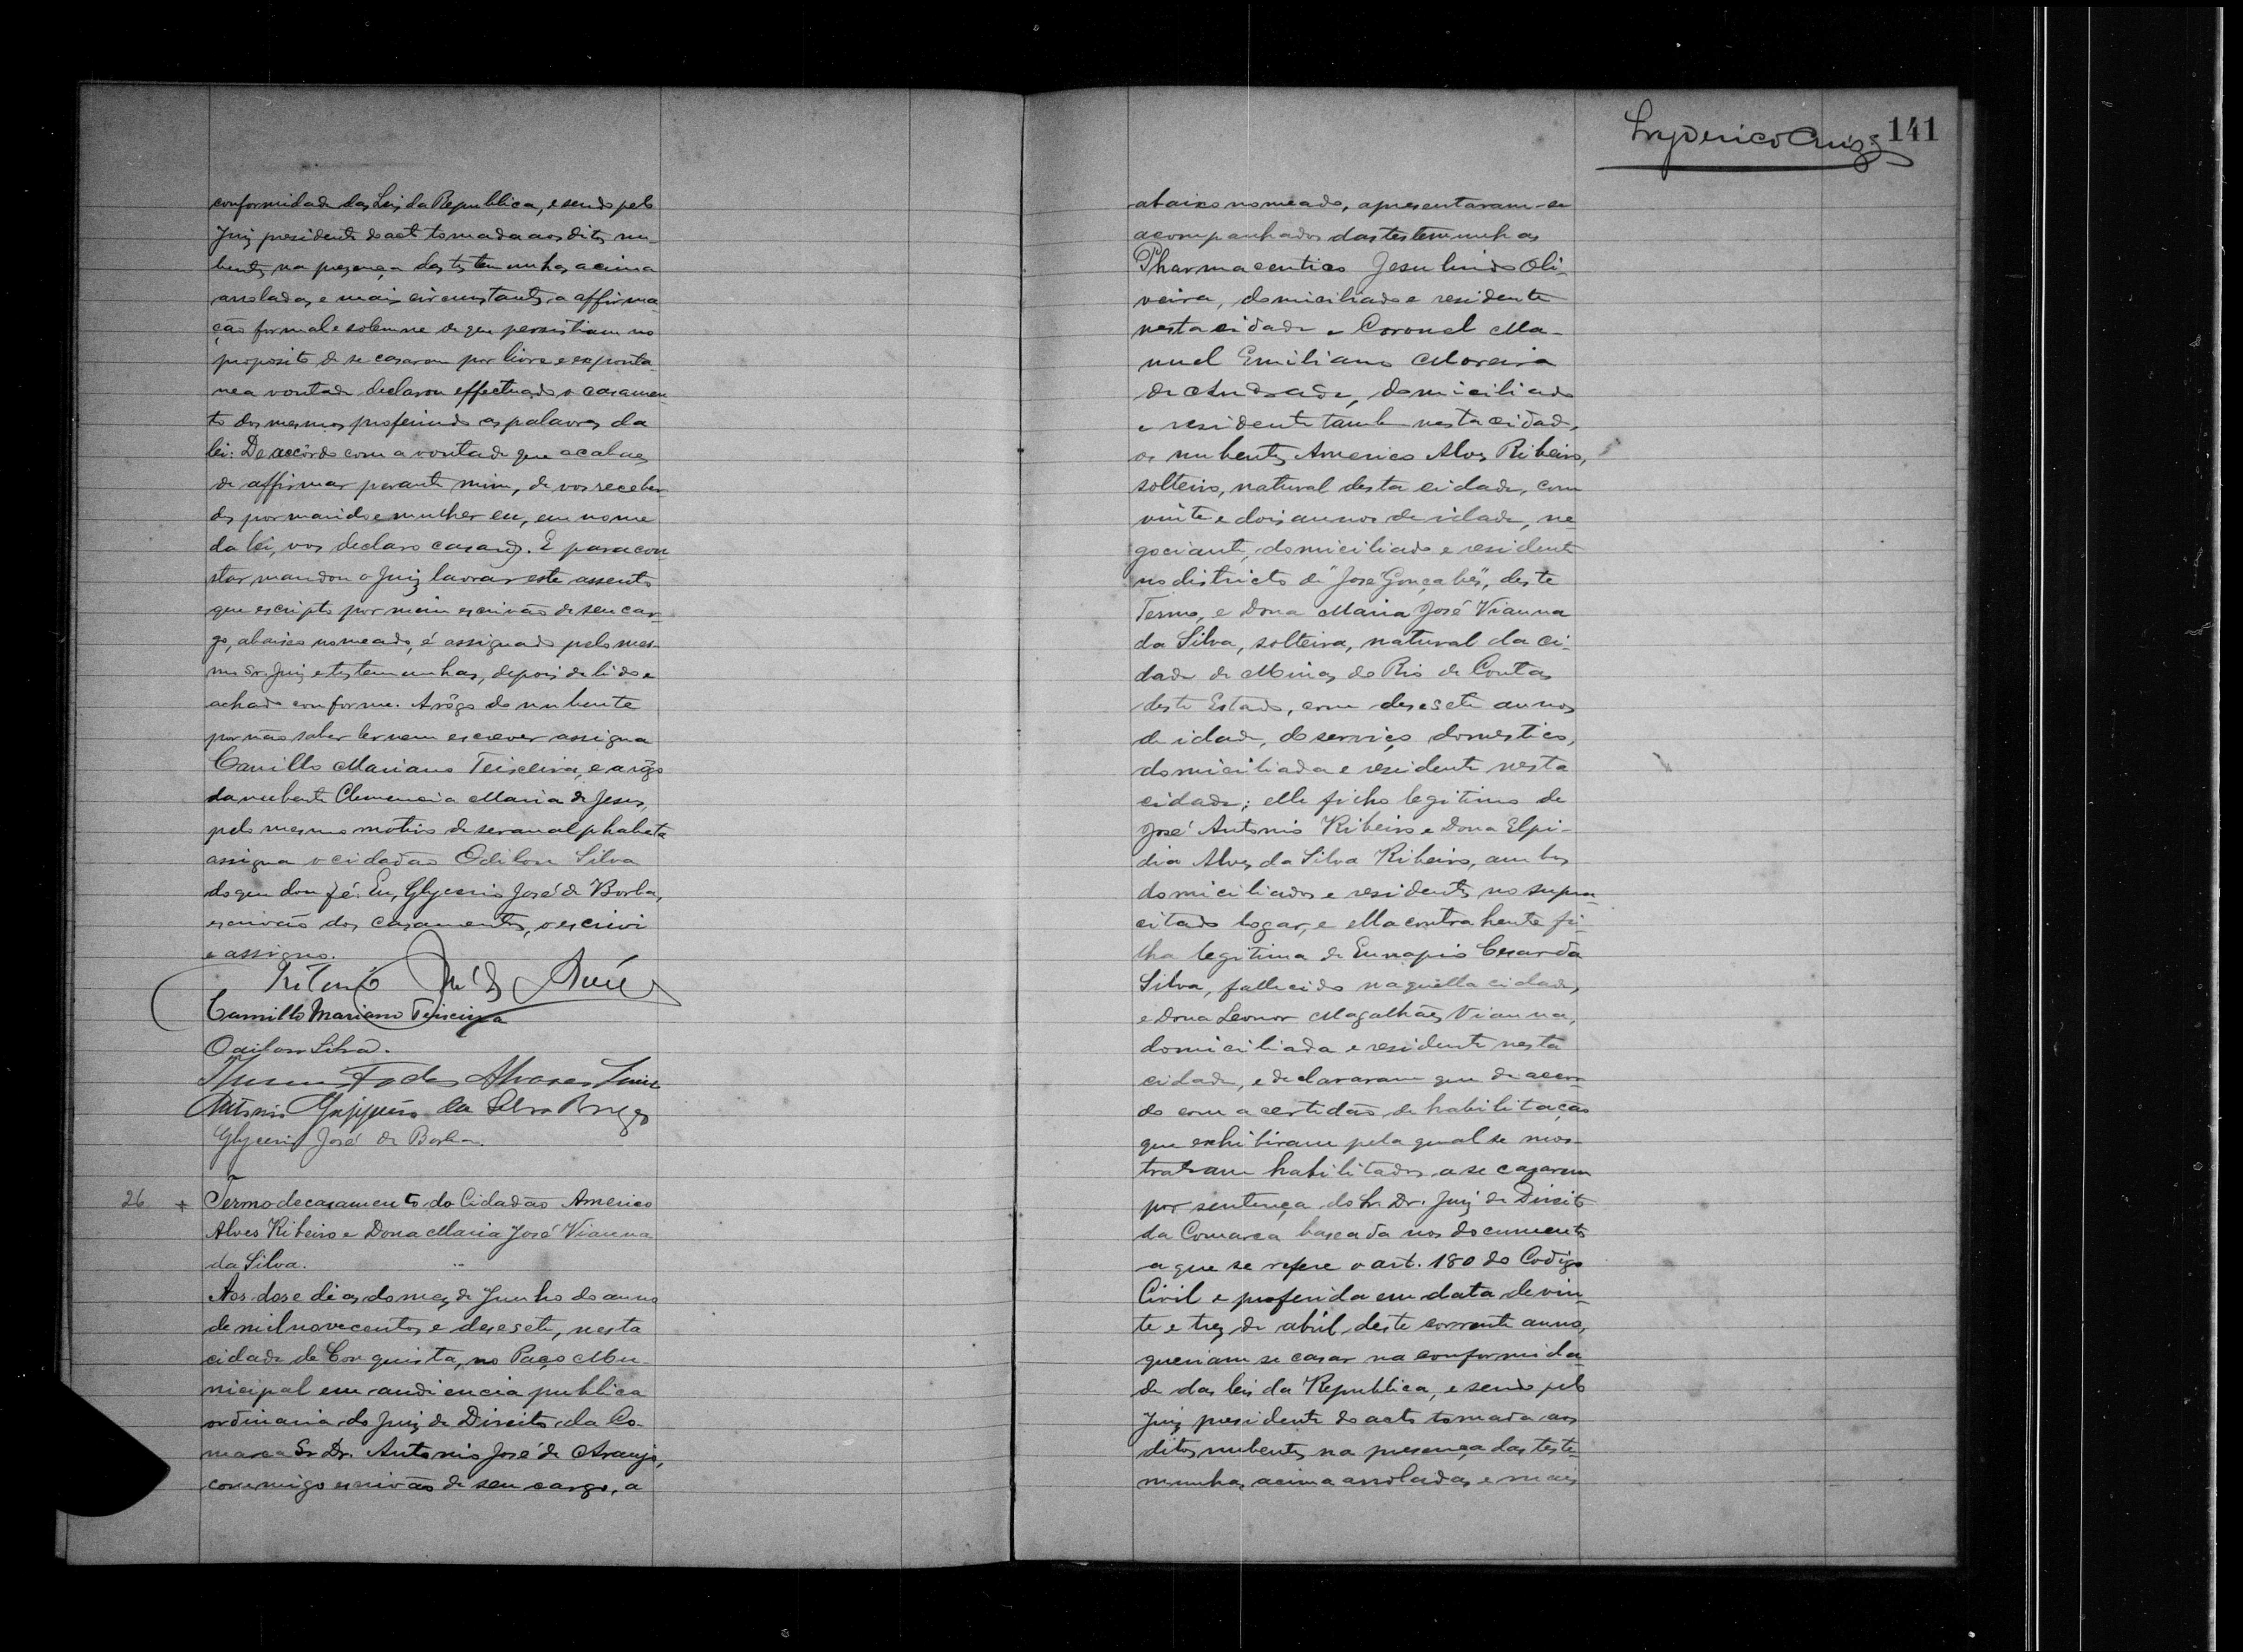 conformidade das Leis da Republica, e sendo pelo
Juiz presidente do acto tomada aos ditos nu-
bentes na presença das testemunhas acima
arroladas e mais circunstantes a affirma-
ção formal e solemne de que persistiam no
proposito de se casarem por livre e exponta-
nea vontade declarou effectuado o casamen-
to dos mesmos proferindo as palavras da
lei: De accôrdo com a vontade que acabaes
de affirmar perante mim, de vos receber-
des por marido e mulher eu, em nome
da lei, vos declaro casados. E para con-
star mandou o Juiz lavrar este assento
que escripto por mim escrivão de seu car-
go, abaixo nomeado, é assignado pelo mes-
mo Sr. Juiz e testemunhas, depois de lido e
achado conforme. A rôgo do nubente
por não saber ler nem escrever assigna
Camillo Mariano Teixeira, e a rôgo
da nubente Clemencia Maria de Jesus,
pelo mesmo motivo de ser analphabeta
assigna o cidadão Odilon Silva
do que dou fé. Eu, Glycerio José de Borba,
escrivão dos casamentos, o escrivi
e assigno.
Camillo Mariano Teixeira
Odilon Silva.
Alvares
Antonio da Silva
Glycerio José de Borba.
26 + Termo de casamento do Cidadão Americo
Alves Ribeiro e Dona Maria José Vianna
da Silva.
Aos dose dias do mez de Junho do anno
de mil novecentos e desesete, nesta
cidade de Conquista, no Paço Mu-
nicipal em audiencia publica
ordinaria do Juiz de Direito da Co-
marca Sr. Dr. Antonio José de Araujo,
commigo escrivão de seu cargo, a
141
abaixo nomeado, apresentaram-se
acompanhados das testemunhas
Pharmaceutico Jesulindo Oli-
veira, domiciliado e residente
nesta cidade e Coronel Ma-
nuel Emiliano Moreira
de Andrade, domiciliado
e residente tambem nesta cidade,
os nubentes Americo Alves Ribeiro,
solteiro, natural desta cidade, com
vinte e dois annos de idade, ne-
gociante, domiciliado e residente
no districto de "José Gonçalves", deste
Termo, e Dona Maria José Vianna
da Silva, solteira, natural da ci-
dade de Minas do Rio de Contas
deste Estado, com desesete annos
de idade, de serviço domestico,
domiciliada e residente nesta
cidade; elle filho legitimo de
José Antonio Ribeiro e Dona Elpi-
dia Alves da Silva Ribeiro, ambos
domiciliados e residentes no supra-
citado logar, e ella contrahente fi-
lha legitima de Eunapio Cesar da
Silva, fallecido naquella cidade,
e Dona Leonor Magalhães Vianna,
domiciliada e residente nesta
cidade, e declararam que de accor-
do com a certidão de habilitação
que exhibiram pela qual se mos-
traram habilitados a se casarem
por sentença do Sr. Dr. Juiz de Direito
da Comarca baseada nos documentos
a que se refere o art. 180 do Codigo
Civil e proferida em data de vin-
te e trez de abril deste corrente anno,
queriam se casar na conformida-
de das leis da Republica, e sendo pelo
Juiz presidente do acto tomada aos
ditos nubentes na presença das teste-
munhas acima arroladas e mais